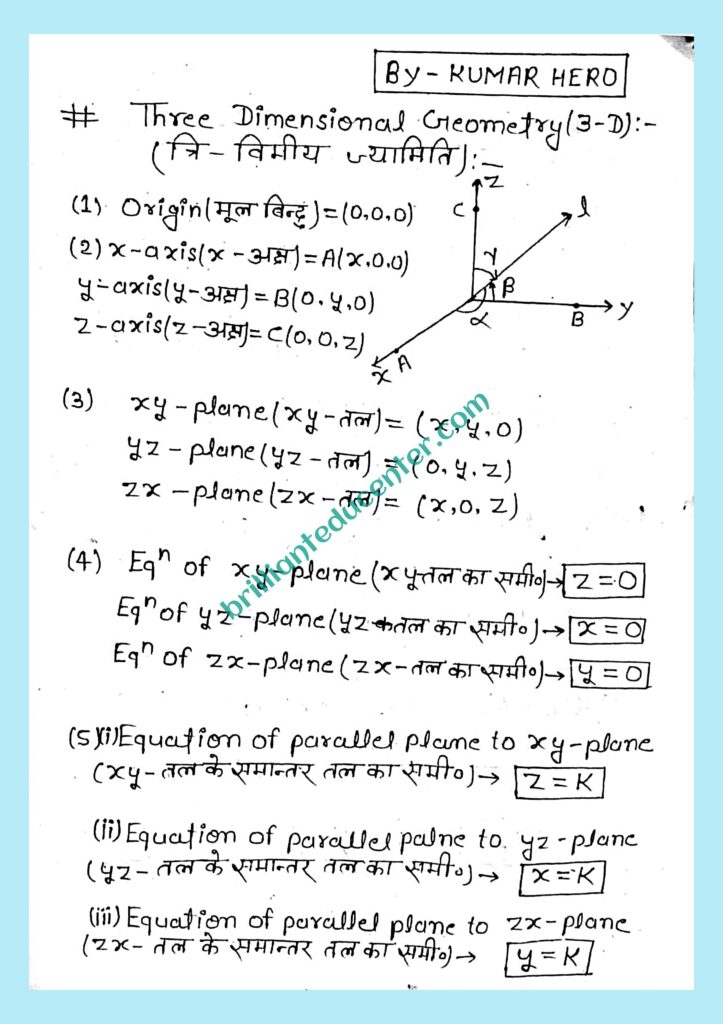 By - KUMAR HERO
# Three Dimensional Geometry (3-D):-
(त्रि - विमीय ज्यामिति):-
(1) Origin(मूल बिन्दु)=(0,0,0)
(2) x-axis(x-अक्ष)=A(x,0,0)
y-axis(y-अक्ष)=B(0,y,0)
z-axis(z-अक्ष)=C(0,0,z)
z
C
l
γ
β
α
B
y
A
x
(3) xy-plane(xy-तल)= (x,y,0)
yz-plane(yz-तल) = (0,y,z)
zx-plane(zx-तल)= (x,0,z)
brillianteducenter.com
(4) Eqⁿ of xy-plane(xy-तल का समी०)→ z=0
Eqⁿ of yz-plane(yz-तल का समी०)→ x=0
Eqⁿ of zx-plane(zx-तल का समी०)→ y=0
(5)(i) Equation of parallel plane to xy-plane
(xy-तल के समान्तर तल का समी०)→ z=K
(ii) Equation of parallel palne to yz-plane
(yz-तल के समान्तर तल का समी०)→ x=K
(iii) Equation of parallel plane to zx-plane
(zx-तल के समान्तर तल का समी०)→ y=K